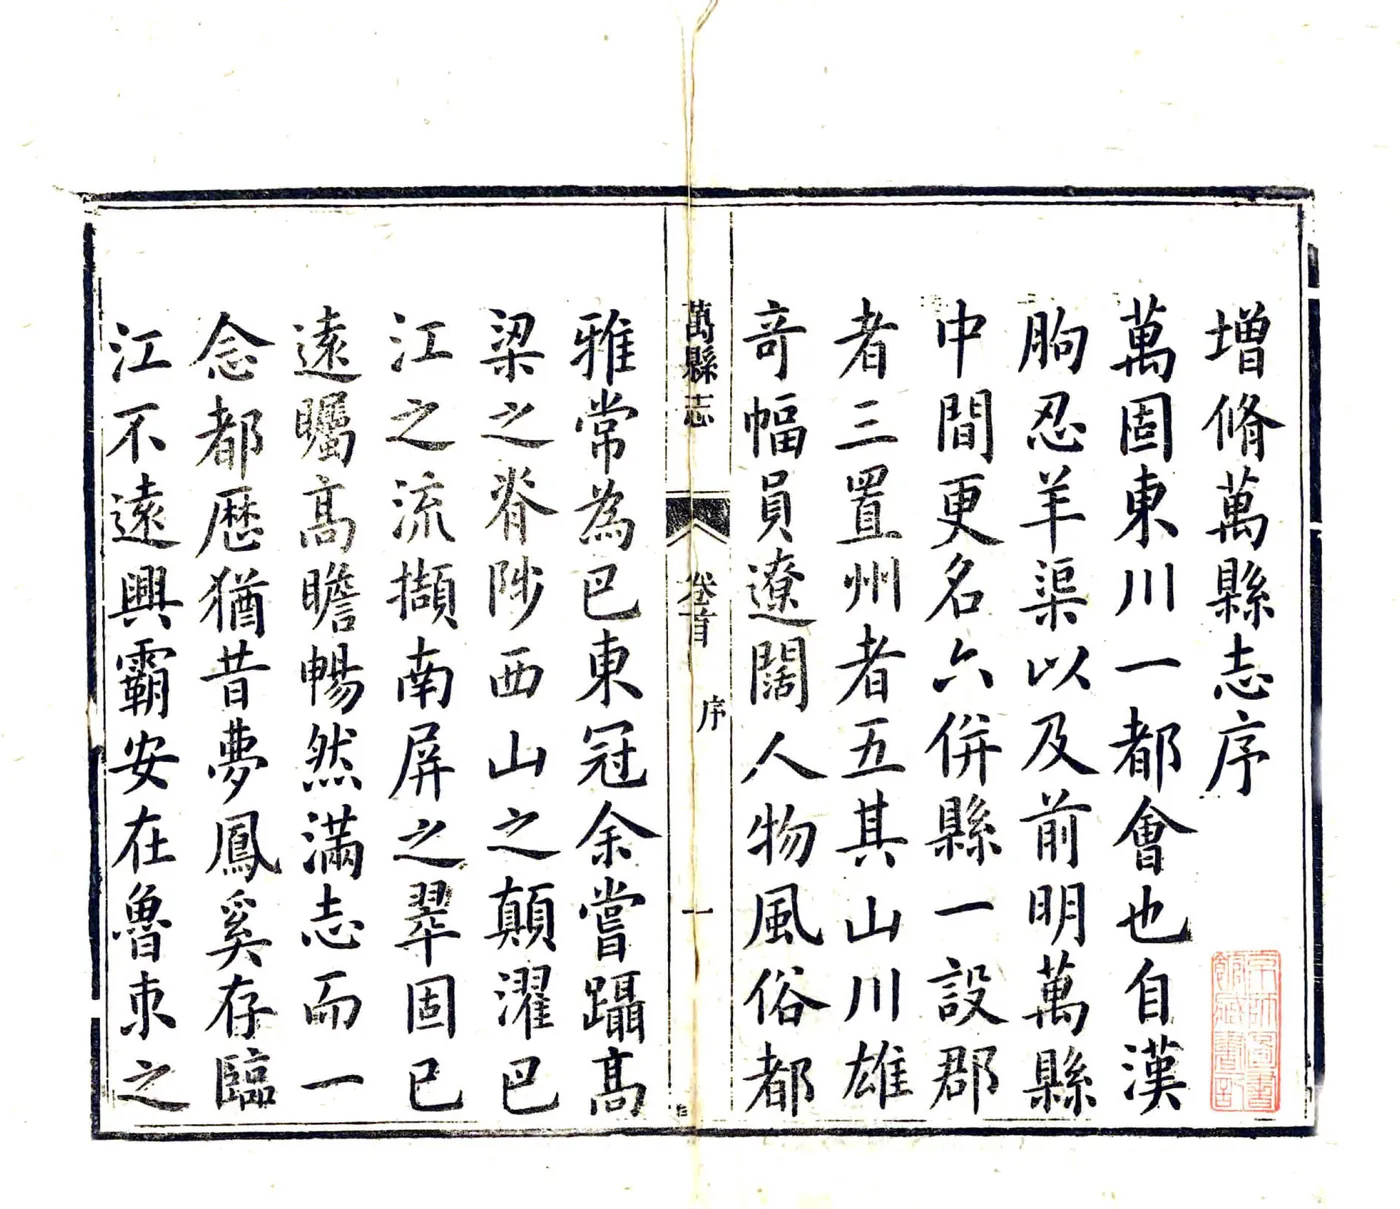 增脩萬縣志序
萬固東川一都會也自漢
朐忍羊渠以及前明萬縣
中間更名六併縣一設郡
者三置州者五其山川雄
竒幅員遼闊人物風俗都
萬縣志
卷首
序
一
雅常為巴東冠余嘗躡高
梁之脊陟西山之顛濯巴
江之流擷南屏之翠固已
遠矚高瞻暢然滿志而一
念都歷猶昔夢鳳奚存臨
江不遠興霸安在魯朿之
京師圖書
館藏書記